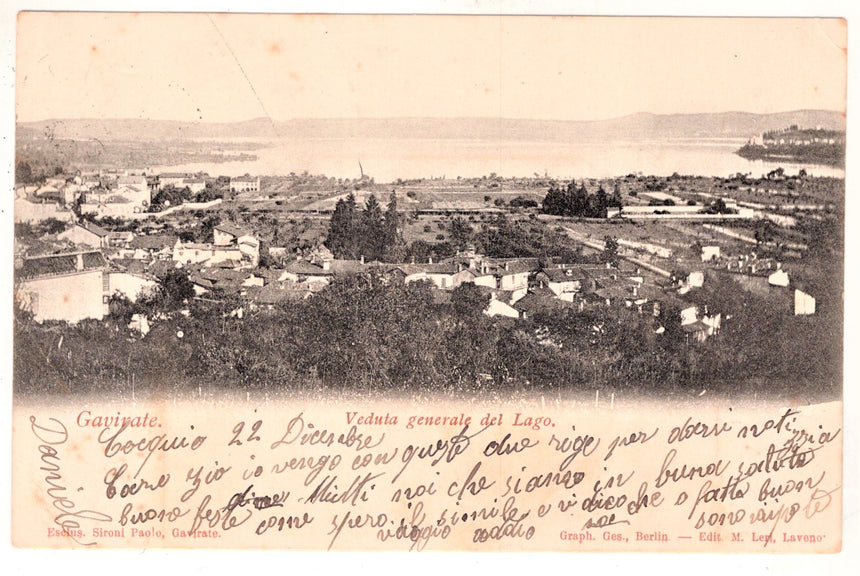 Gavirate.
Veduta generale del Lago.
Cocquio 22 Dicembre
Caere Zio io vengo con queste due rige per darvi notizzia
buone feste Miei noi che siamo in buna salute
come spero il simile e vi dico che o fatto buon
viaggio addio sono nipote
Daniele
Esclus. Sironi Paolo, Gavirate.
Graph. Ges., Berlin — Edit. M. Leri, Laveno